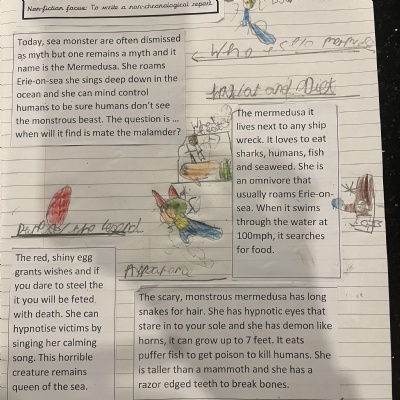 Non-fiction focus: To write a non-chronological report
Today, sea monster are often dismissed
as myth but one remains a myth and it
name is the Mermedusa. She roams
Erie-on-sea she sings deep down in the
ocean and she can mind control
humans to be sure humans don't see
the monstrous beast. The question is ...
when will it find is mate the malamder?
Habitat and Diet
The mermedusa it
lives next to any ship
wreck. It loves to eat
sharks, humans, fish
and seaweed. She is
an omnivore that
usually roams Erie-on-
sea. When it swims
through the water at
100mph, it searches
for food.
legend
The red, shiny egg
grants wishes and if
you dare to steel the
it you will be feted
with death. She can
hypnotise victims by
singing her calming
song. This horrible
creature remains
queen of the sea.
The scary, monstrous mermedusa has long
snakes for hair. She has hypnotic eyes that
stare in to your sole and she has demon like
horns, it can grow up to 7 feet. It eats
puffer fish to get poison to kill humans. She
is taller than a mammoth and she has a
razor edged teeth to break bones.